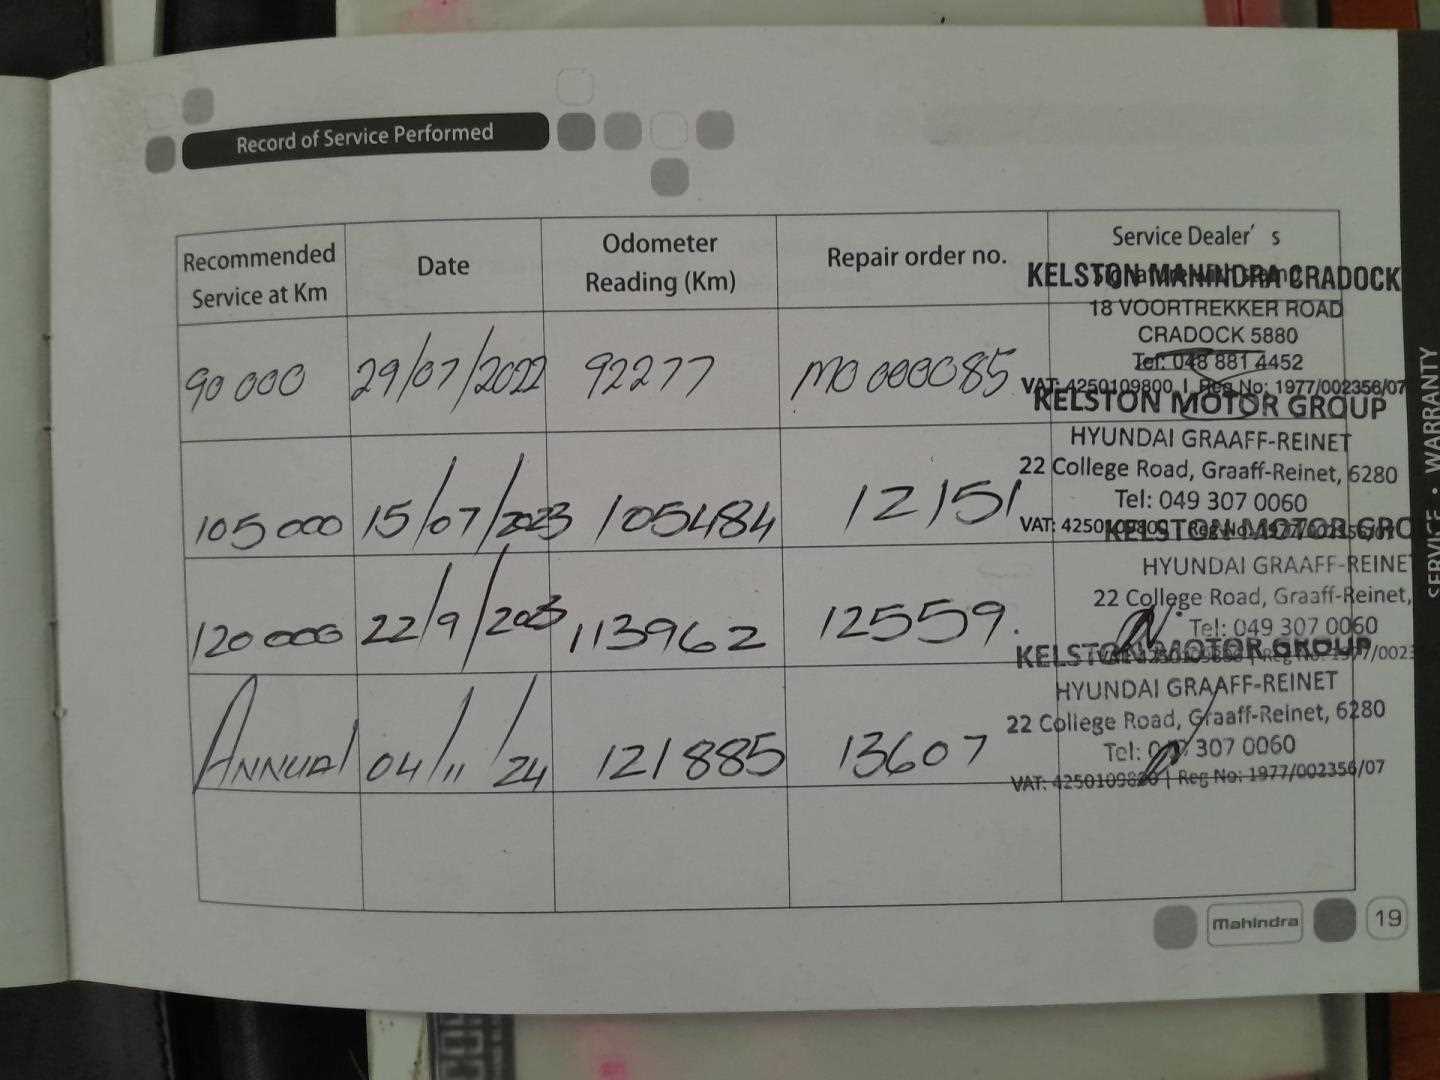 Record of Service Performed
Recommended Service at Km
Date
Odometer Reading (Km)
Repair order no.
Service Dealer's
KELSTON MAHINDRA CRADOCK
18 VOORTREKKER ROAD
CRADOCK 5880
Tel: 048 881 4452
VAT: 4250109800 | Reg No: 1977/002356/07
90 000 29/07/2022 92277 MO 000085
KELSTON MOTOR GROUP
HYUNDAI GRAAFF-REINET
22 College Road, Graaff-Reinet, 6280
Tel: 049 307 0060
105 000 15/07/2023 105484 12151
KELSTON MOTOR GRO
HYUNDAI GRAAFF-REINET
22 College Road, Graaff-Reinet,
Tel: 049 307 0060
120 000 22/9/2023 113962 12559.
KELSTON MOTOR GROUP
HYUNDAI GRAAFF-REINET
22 College Road, Graaff-Reinet, 6280
Tel: 307 0060
Reg No: 1977/002356/07
ANNUAL 04/11/24 121885 13607
Mahindra
19
SERVICE • WARRANTY